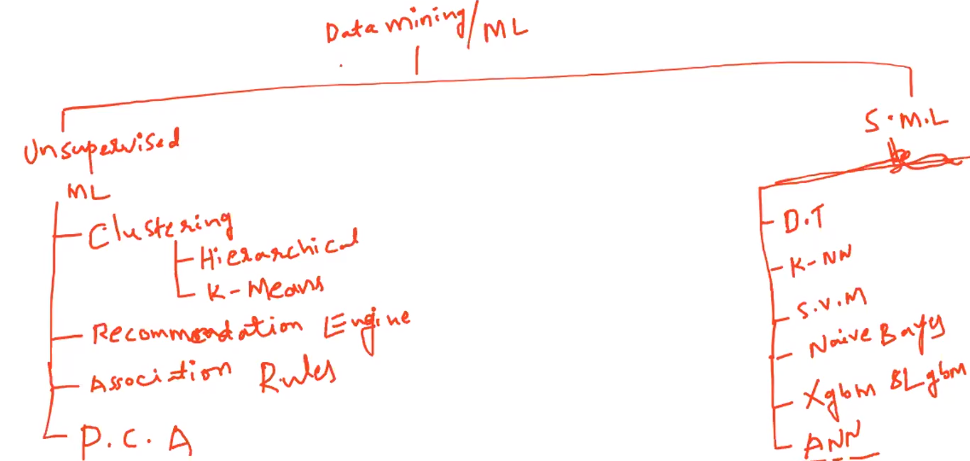 Data mining/ML
Unsupervised
ML
Clustering
Hierarchical
K-Means
Recommendation Engine
Association Rules
P.C.A
S.M.L
D.T
K-NN
S.V.M
Naive Bayes
Xgbm & Lgbm
ANN